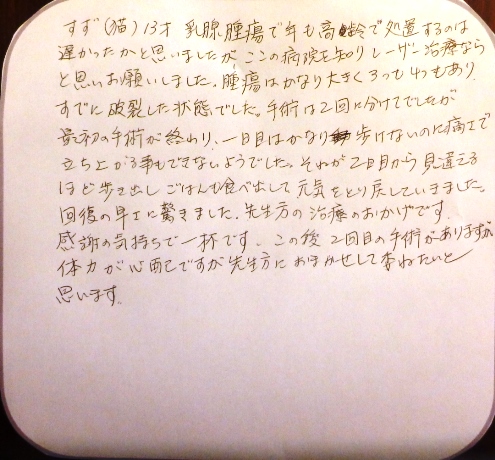 すず(猫)13才 乳腺腫瘍で年も高齢で処置するのは
遅かったかと思いましたが ここの病院を知り レーザー治療なら
と思いお願いしました。腫瘍はかなり大きく3つも4つもあり
すでに破裂した状態でした。手術は2回に分けてでしたが
最初の手術が終わり、一日目はかなり歩けないのに痛さで
立ち上がる事もできないようでした。それが2日目から見違える
ほど歩き出し ごはんも食べ出して元気をとり戻していきました。
回復の早さに驚きました。先生方の治療のおかげです。
感謝の気持ちで一杯です。この後2回目の手術がありますが
体力が心配ですが先生方におまかせして委ねたいと
思います。